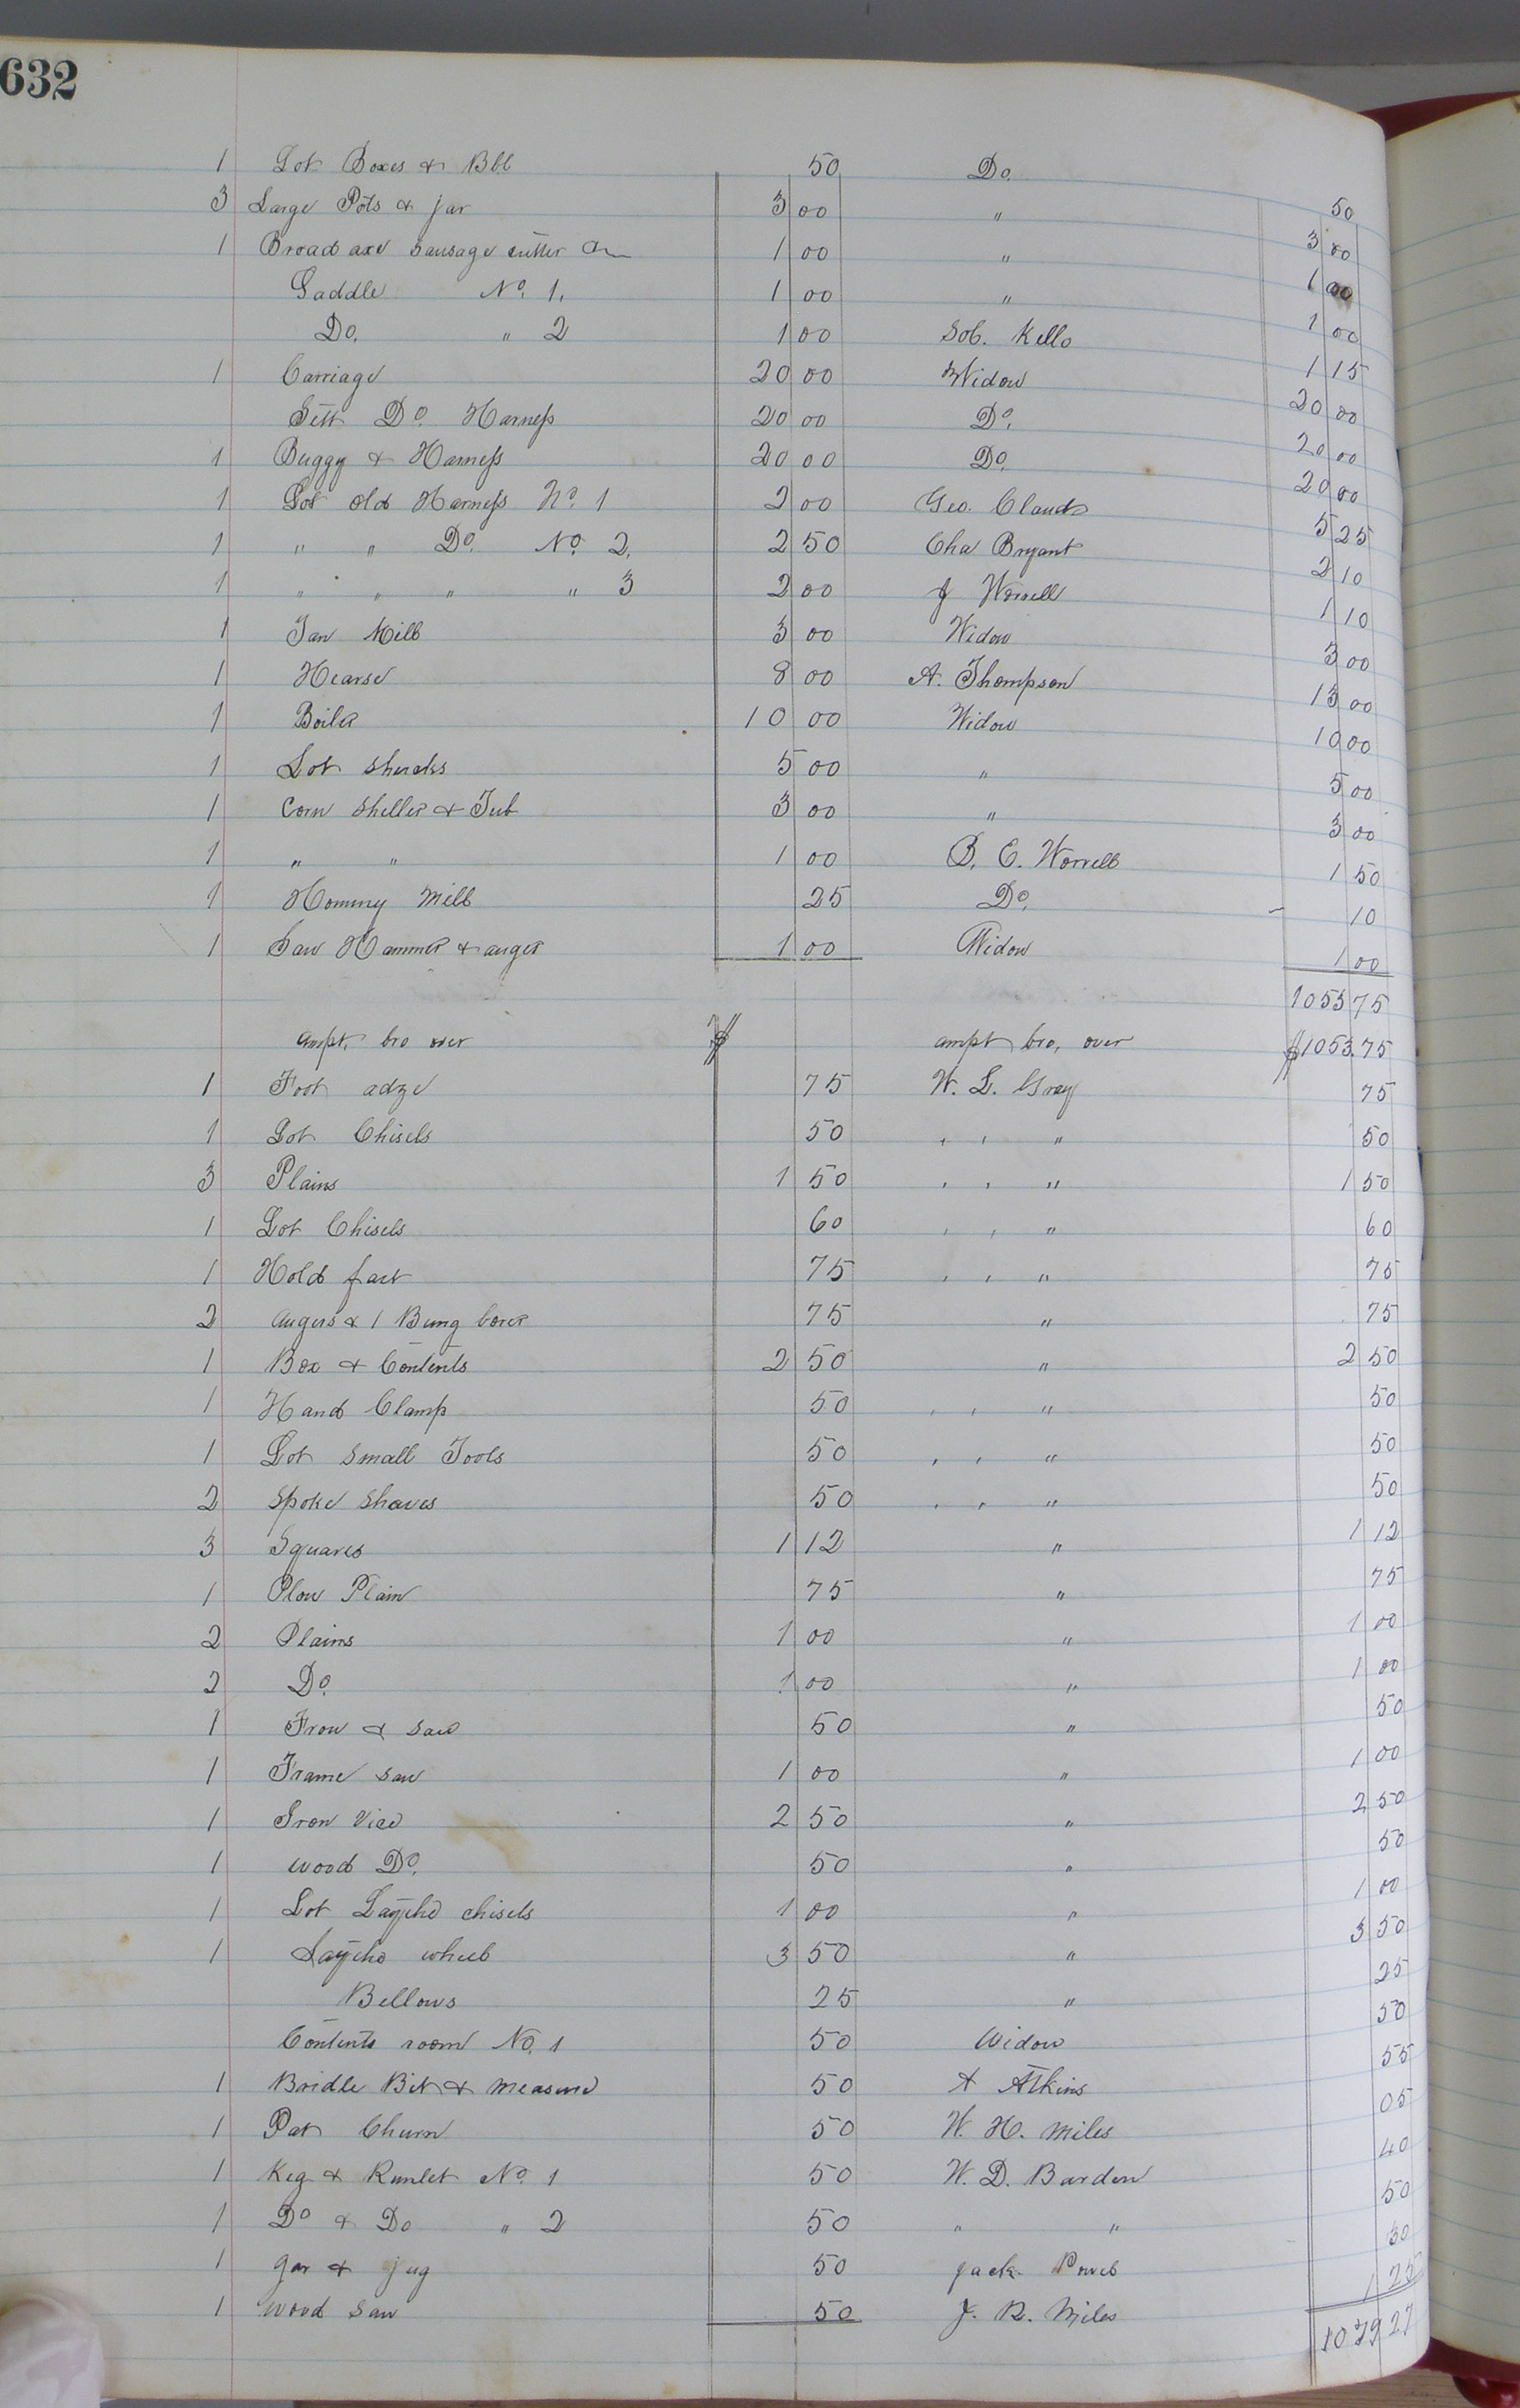 632
1 Lot Boxes & Bbl 50 Do. 50
3 Large Pots & jar 3 00 " 3 00
1 Broad axe Sausage cutter 1 00 " 1 00
Saddle No. 1. 1 00 " 1 00
Do. " 2 1 00 Sol. Kello 1 15
1 Carriage 20 00 Widow 20 00
Sett Do. Harness 20 00 Do. 20 00
1 Buggy & Harness 20 00 Do. 20 00
1 Lot old Harness No. 1 2 00 Geo. Claud 5 25
1 " " Do. No. 2. 2 50 Cha Bryant 2 10
1 " " " " 3 2 00 J Worrell 1 10
1 Fan Mill 3 00 Widow 3 00
1 Hearse 8 00 A. Thompson 13 00
1 Boiler 10 00 Widow 10 00
1 Lot Shucks 5 00 " 5 00
1 Corn Sheller & Tub 3 00 " 3 00
1 " " 1 00 B. E. Worrell 1 50
1 Hommy Mill 25 Do. 10
1 Saw Hammer & auger 1 00 Widow 1 00
1053 75
ampt. bro over $ ampt bro, over $1053.75
1 Foot adze 75 W. L. Gray 75
1 Lot Chisels 50 , , " 50
3 Plains 1 50 , , " 1 50
1 Lot Chisels 60 , , " 60
1 Hold fast 75 , , " 75
2 augers & 1 Bung borer 75 " 75
1 Box & Contents 2 50 " 2 50
1 Hand Clamp 50 , , " 50
1 Lot Small Tools 50 , , " 50
2 Spoke Shaves 50 , , " 50
3 Squares 1 12 " 1 12
1 Plow Plain 75 " 75
2 Plains 1 00 " 1 00
2 Do. 1 00 " 1 00
1 Frow & Saw 50 " 50
1 Frame Saw 1 00 " 1 00
1 Iron Vice 2 50 " 2 50
1 wood Do. 50 " 50
1 Lot chisels 1 00 " 1 00
1 wheel 3 50 " 3 50
Bellows 25 " 25
Contents room No. 1 50 Widow 50
1 Bridle Bit & measure 50 A Atkins 55
1 Pat Churn 50 W. H. Miles 05
1 Keg & Runlet No. 1 50 W. D. Barden 40
1 Do & Do " 2 50 " " 50
1 Jar & jug 50 Jack 30
1 Wood Saw 50 J. R. Miles 1 25
1079 27